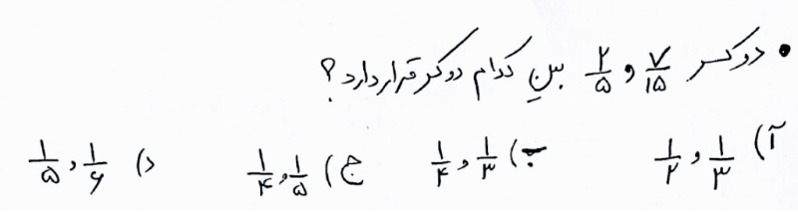 • دو کسر ۷/۱۵ و ۲/۵ بین کدام دو کسر قرار دارد؟
آ) ۱/۳ و ۱/۲ ب) ۱/۳ و ۱/۴ ج) ۱/۵ و ۱/۴ د) ۱/۶ و ۱/۵